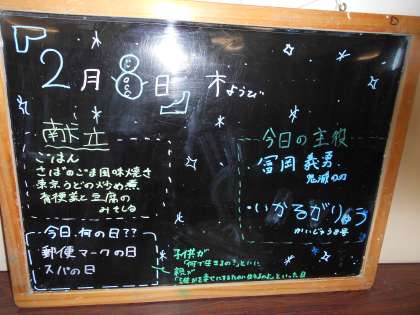 2月8日 木ようび
献立
ごはん
さばのごま風味焼き
東京うどの炒め煮
有機菜と豆腐の
みそしる
今日の主役
冨岡 義勇
鬼滅の刃
いかるがりゅう
かいじゅう8号
今日、何の日??
郵便マークの日
スバの日
子供が
「何で生きるの?」とい
親が
「誰かを幸せにするために生きるのよ」といった日